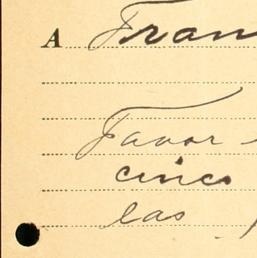 A Fran
Favor
cinco
las